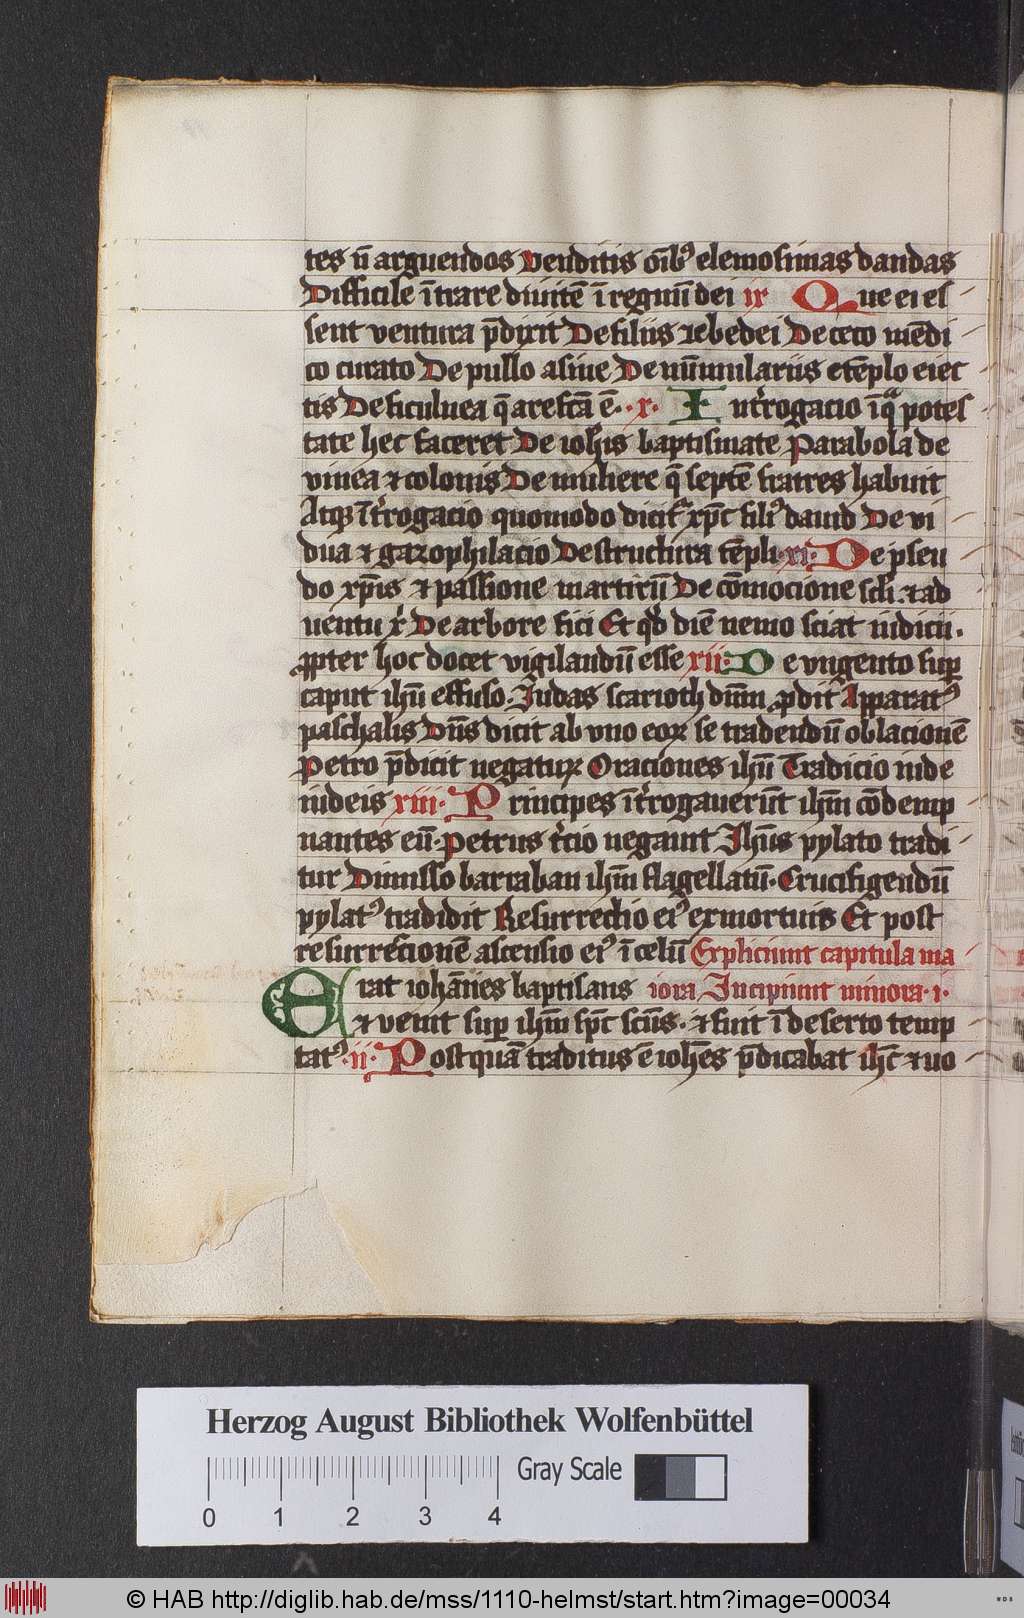 tes n̄ arguendos Venditis oīb9 elemosinas dandas
Difficile ītrare diuitē ī regnū dei ix Que ei es
sent ventura p̄dixit De filiis zebedei De ceco mēdi
co curato De pullo asine De nūmulariis etēplo eiec
tis De ficulnea q̄ arefcā ē · x · Int'rogacio ī qa potes
tate hec faceret De ioh̄is baptismate Parabola de
vinea ⁊ colonis De muliere q̄ septē fratres habuit
Atqz īt'rogacio quomodo dicit᷑ xp̄c fili9 dauid De vi
dua ⁊ gazophilacio Destructura tēpli · xi · De pseu
do xp̄is ⁊ passione martirū De cōmocione scl'i · ⁊ ad
uentu x' De arbore fici Et qd' diē nemo sciat iudicii ·
ꝓpter hoc docet vigilandū esse xii · De vngento suꝑ
caput ih̄u effuso · Judas scarioth dn̄m ꝓdit᷑ Apparat9
paschalis Dn̄s dicit ab vno eoꝝ se tradendū oblacionē
Petro p̄dicit negatuꝝ Oraciones ih̄u Tradicio iude
iudeis xiii · Principes īt'rogauerūt ih̄m cōdemp
nantes eū · Petrus t'cio negauit Jhūs pylato tradi
tur Dimisso barraban ih̄m flagellatū · Crucifigendū
pylat9 tradidit Resurrectio ei9 ex mortuis Et post
resurrectionē ascensio ei9 ī celū Expliciunt capitula ma
Erat ioh̄annes baptisans iora Incipiunt minora · i ·
⁊ venit suꝑ ih̄m sp̄c scūs · ⁊ fuit ī deserto temp
tat9 · ii · Postquā traditus ē ioh̄es p̄dicabat ih̄c ⁊ uo
Herzog August Bibliothek Wolfenbüttel
Gray Scale
0 1 2 3 4
© HAB http://diglib.hab.de/mss/1110-helmst/start.htm?image=00034